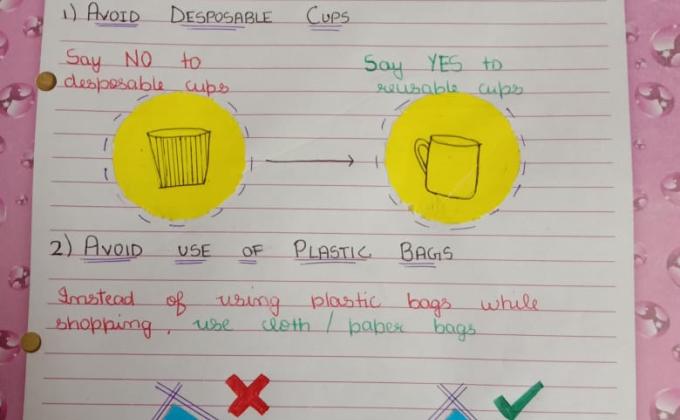 1) AVOID DESPOSABLE CUPS
Say NO to
desposable cups
Say YES to
reusable cups
2) AVOID USE OF PLASTIC BAGS
Instead of using plastic bags while
shopping, use cloth / paper bags